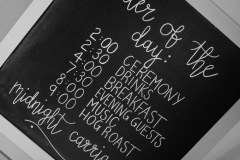 er of the
day:
2:00 CEREMONY
2:30 DRINKS
4:00 BREAKFAST
7:00 EVENING GUESTS
8:30 MUSIC
9:00 HOG ROAST
midnight carria